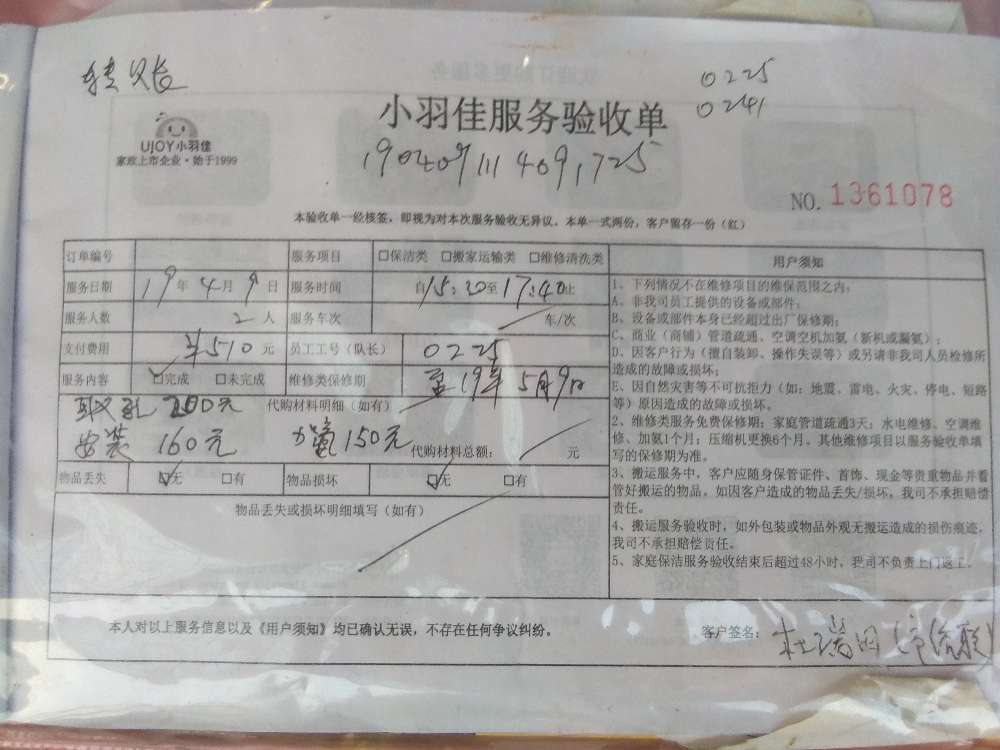 转账
0225
0241
小羽佳服务验收单
UJOY小羽佳
家政上市企业·始于1999
1904091114091725
NO. 1361078
本验收单一经核签，即视为对本次服务验收无异议。本单一式两份，客户留存一份（红）
订单编号 服务项目 □保洁类 □搬家运输类 □维修清洗类
服务日期 19年4月9日 服务时间 自15:20至17:40止
服务人数 2人 服务车次 车/次
支付费用 ¥510元 员工工号（队长） 0225
服务内容 ☑完成 □未完成 维修类保修期 至19年5月9日
200元 代购材料明细（如有）
安装 160元 150元 代购材料总额： 元
物品丢失 ☑无 □有 物品损坏 ☑无 □有
物品丢失或损坏明细填写（如有）
用户须知
1、下列情况不在维修项目的维保范围之内：
A、非我司员工提供的设备或部件；
B、设备或部件本身已经超过出厂保修期；
C、商业（商铺）管道疏通、空调空机加氨（新机或漏氨）；
D、因客户行为（擅自装卸、操作失误等）或另请非我司人员检修所
造成的故障或损坏；
E、因自然灾害等不可抗拒力（如：地震、雷电、火灾、停电、短路
等）原因造成的故障或损坏。
2、维修类服务免费保修期：家庭管道疏通3天；水电维修、空调维
修、加氨1个月；压缩机更换6个月。其他维修项目以服务验收单填
写的保修期为准。
3、搬运服务中，客户应随身保管证件、首饰、现金等贵重物品并看
管好搬运的物品，如因客户造成的物品丢失/损坏，我司不承担赔偿
责任。
4、搬运服务验收时，如外包装或物品外观无搬运造成的损伤痕迹，
我司不承担赔偿责任。
5、家庭保洁服务验收结束后超过48小时，我司不负责上门返工。
本人对以上服务信息以及《用户须知》均已确认无误，不存在任何争议纠纷。
客户签名： 杜瑞